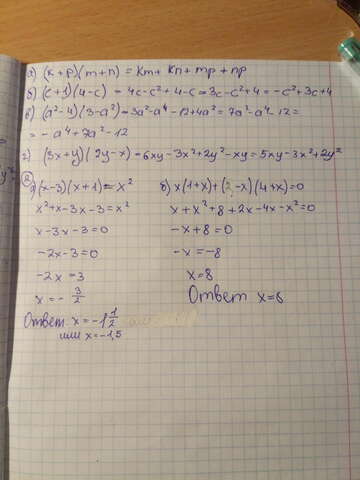 а) (к+р)(m+n) = km + kn + mp + np
б) (c+1)(4-c) = 4c-c²+4-c=3c-c²+4=-c²+3c+4
в) (a²-4)(3-a²)=3a²-a⁴-12+4a²=7a²-a⁴-12=
= -a⁴+7a²-12
г) (3x+y)(2y-x)=6xy-3x²+2y²-xy=5xy-3x²+2y²
②
а)(x-3)(x+1)=x²
x²+x-3x-3=x²
x-3x-3=0
-2x-3=0
-2x=3
x=-3/2
Ответ x=-1 1/2
или x=-1,5
б) x(1+x)+(2-x)(4+x)=0
x+x²+8+2x-4x-x²=0
-x+8=0
-x=-8
x=8
Ответ x=8